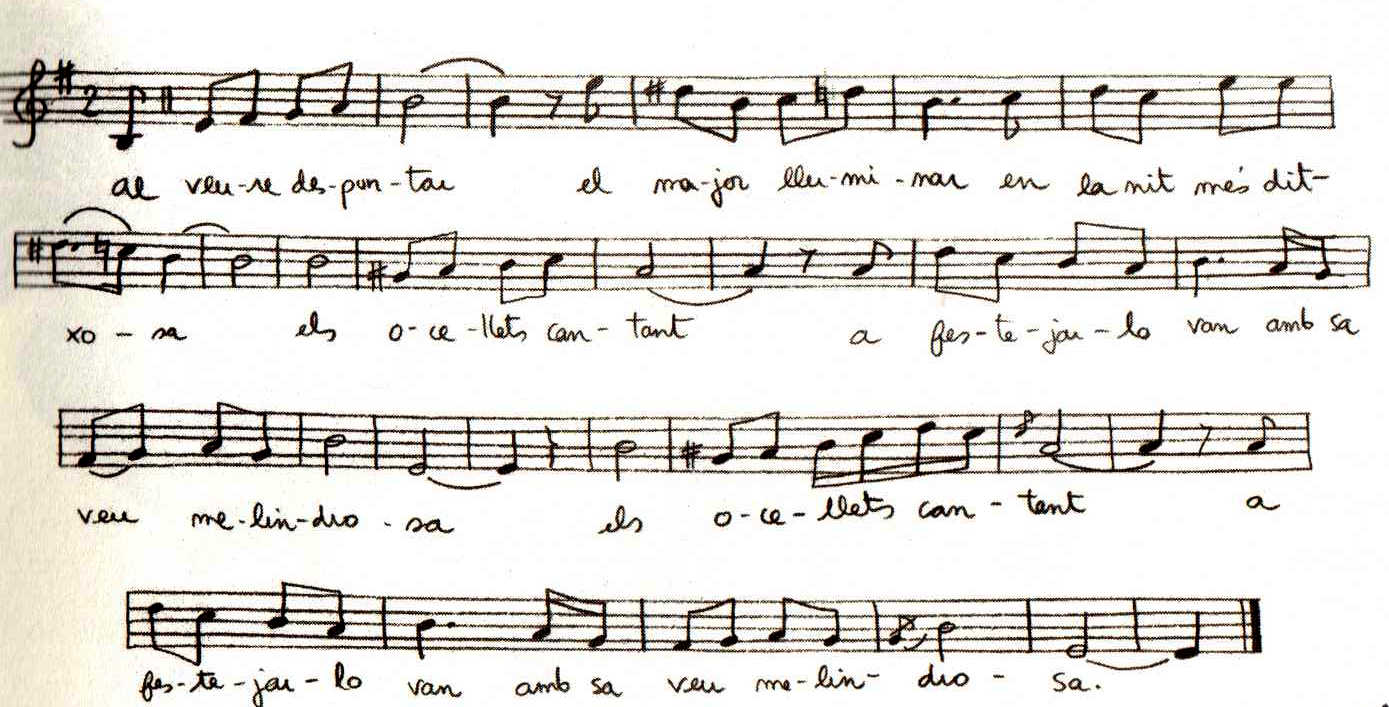 al veu-re des-pun-tar el ma-jor llu-mi-nar en la nit més dit-
xo-sa els o-ce-llets can-tant a fes-te-jar-lo van amb sa
veu me-lin-dro-sa els o-ce-llets can-tant a
fes-te-jar-lo van amb sa veu me-lin-dro-sa.